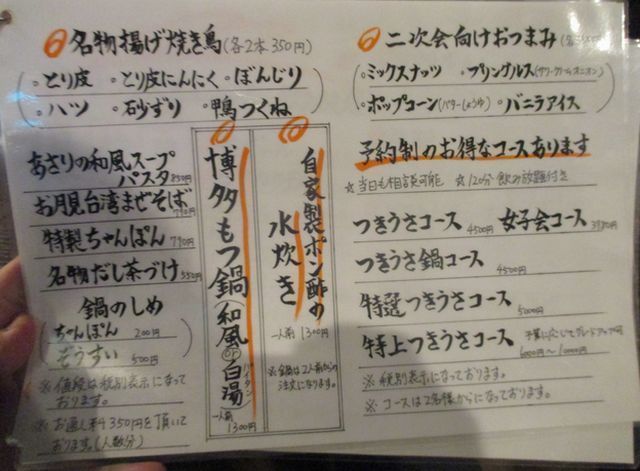 名物揚げ焼き鳥(各2本350円)
・とり皮 ・とり皮にんにく ・ぼんじり
・ハツ ・石少ずり ・鴨つくね
あさりの和風スープ
パスタ 850円
お月見台湾まぜそば
790円
特製ちゃんぽん 790円
名物だし茶づけ 550円
鍋のしめ
ちゃんぽん 200円
ぞうすい 500円
※価格は税別表示になって
おります。
※お通し料350円を頂いて
おります。(人数分)
自家製ポン酢の
水炊き
一人前 1300円
※鍋は2人前からの
注文になります。
博多もつ鍋(和風or白湯)
パイタン
一人前
1300円
二次会向けおつまみ
・ミックスナッツ ・プリングルス(サワークリームオニオン)
・ポップコーン(バターしょうゆ) ・バニラアイス
予約制のお得なコースあります
☆当日も相談可能 ☆120分飲み放題付き
つきうさコース 4500円 女子会コース 3980円
つきうさ鍋コース
4500円
特選つきうさコース
5000円
特上つきうさコース 予算に応じてグレードアップ可
6000円〜10000円
※税別表示になっております。
※コースは2名様からになっております。